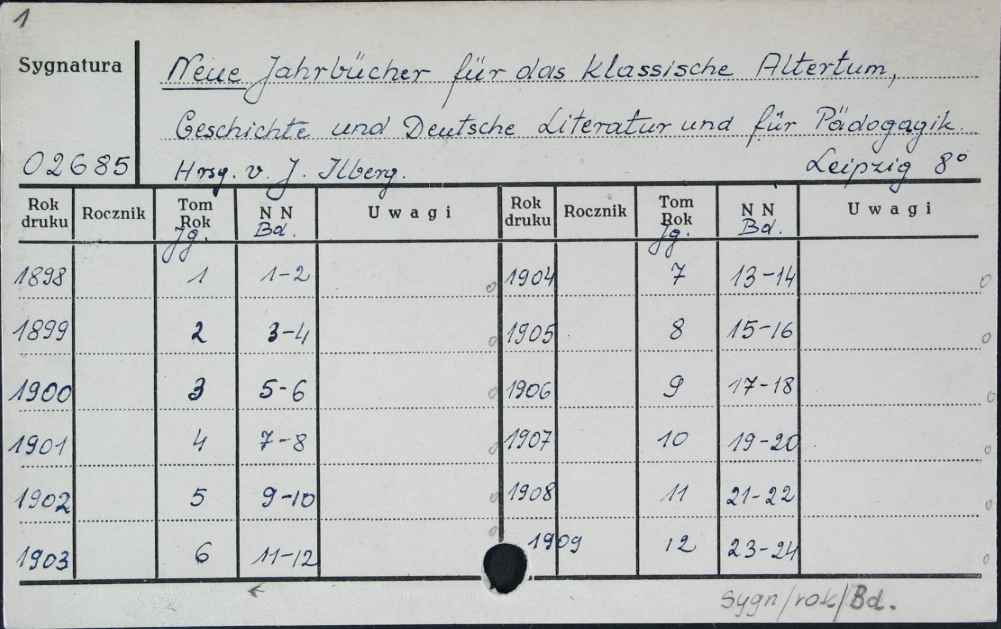 1
Sygnatura
Neue Jahrbücher für das klassische Altertum,
Geschichte und Deutsche Literatur und für Pädogagik.
02685
Hrsg. v. J. Ilberg.
Leipzig 8°
Rok druku Rocznik Tom Rok Jg. N N Bd. Uwagi Rok druku Rocznik Tom Rok Jg. N N Bd. Uwagi
1898 1 1-2 0 1904 7 13-14 0
1899 2 3-4 0 1905 8 15-16 0
1900 3 5-6 0 1906 9 17-18 0
1901 4 7-8 0 1907 10 19-20 0
1902 5 9-10 0 1908 11 21-22 0
1903 6 11-12 0 1909 12 23-24 0
←
Sygn/rok/Bd.